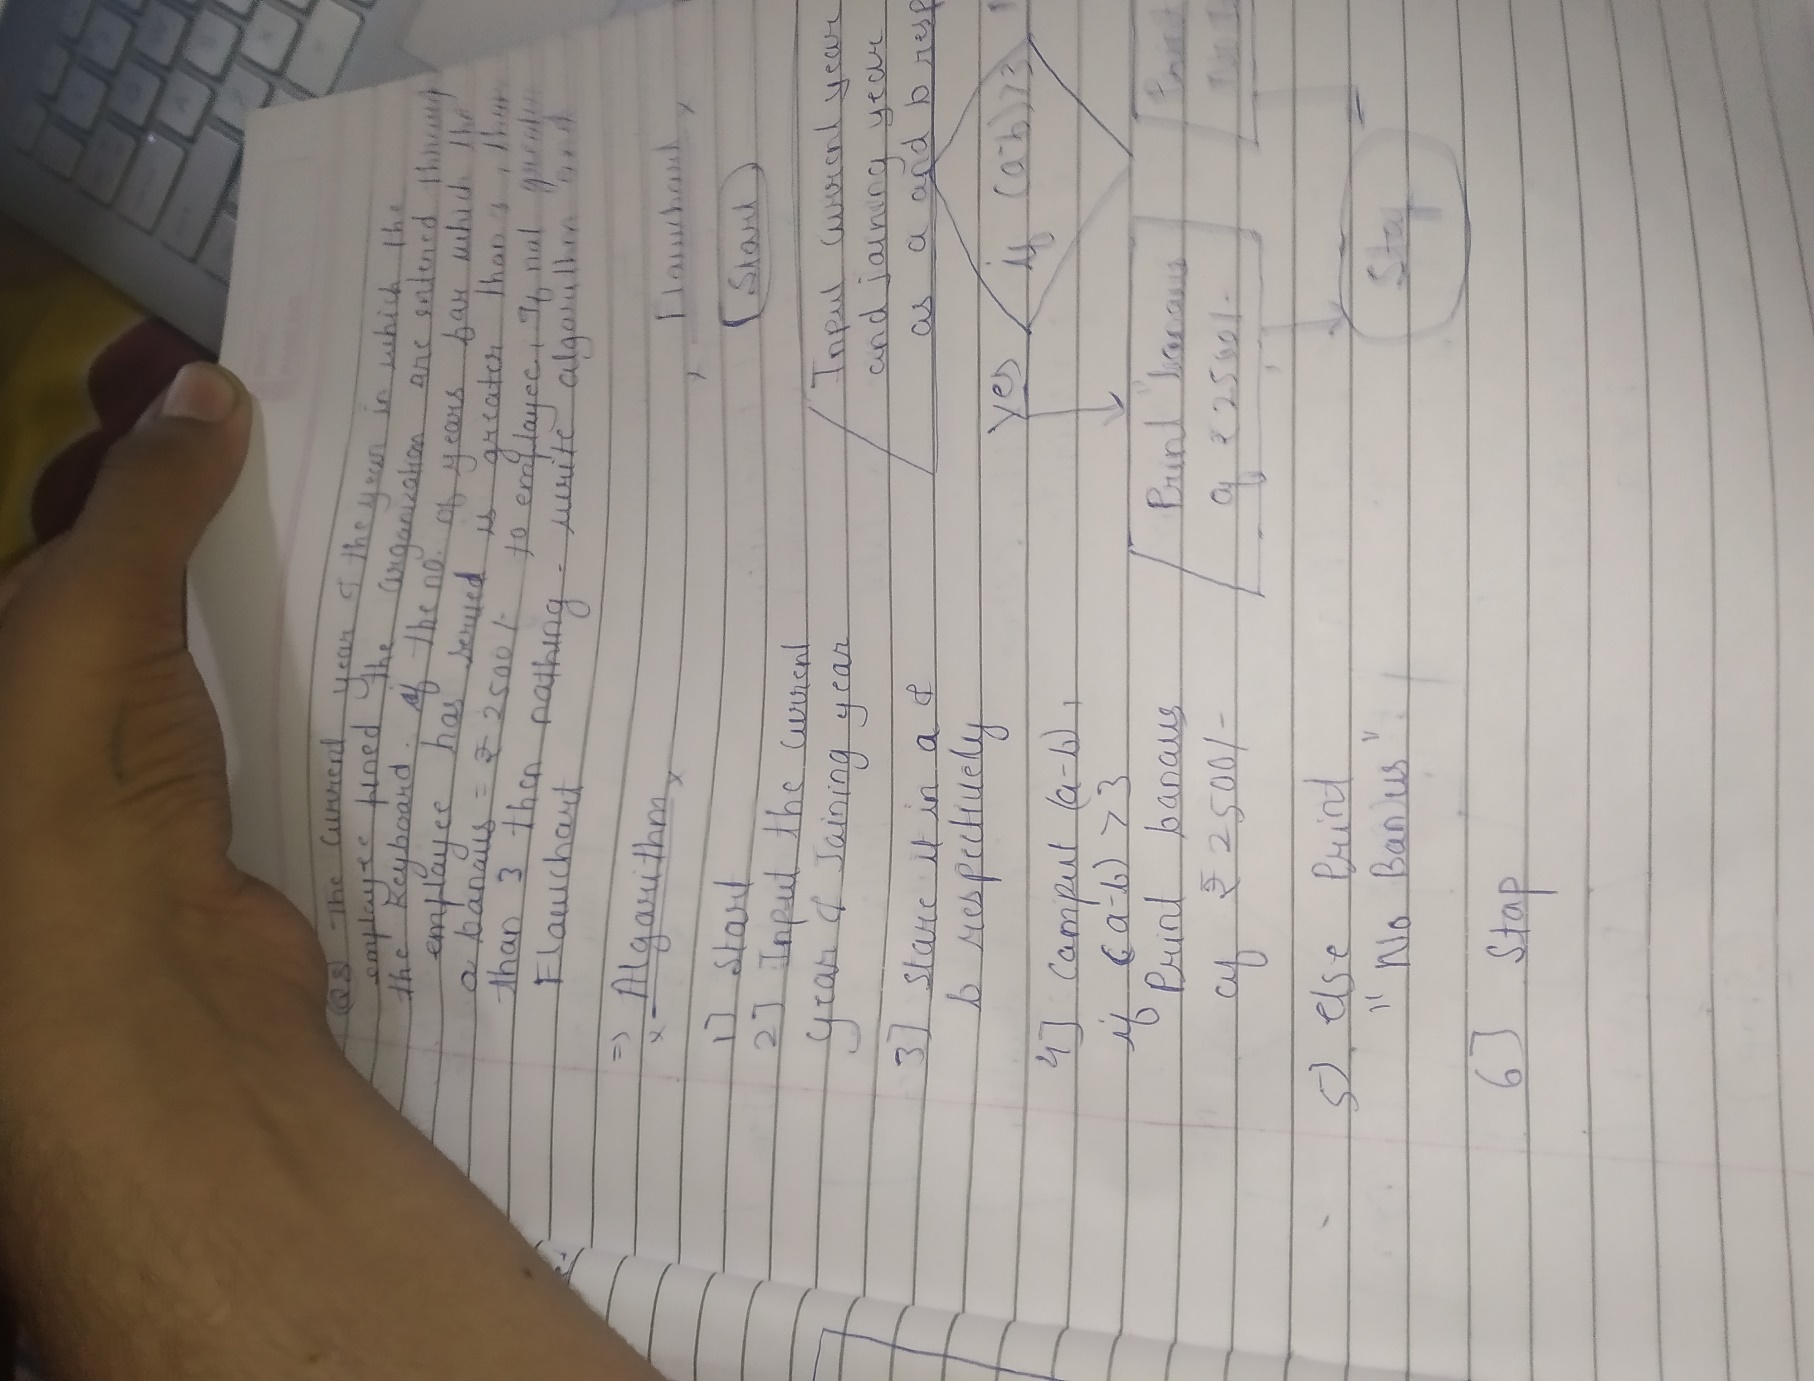 Q8 The current year & the year in which the
employee joined the organization are entered through
the keyboard. if the no. of years for which the
employee has served is greater than 3, then
a bonaus = ₹ 2500/- to employee, If not greater
than 3 then nothing - write algorithm and
Flowchart
=> Algorithm
1] Start
2] Input the current
year & Joining year
3] Store it in a &
b respectively
4] Comput (a-b),
if (a-b) > 3
Print bonaus
of ₹ 2500/-
5) else Print
"No Bonus"
6] Stop
Flowchart
Start
Input current year
and joining year
as a and b resp
if (a-b)>3
Yes
Print "bonaus
of ₹ 2500/-
Print
Stop